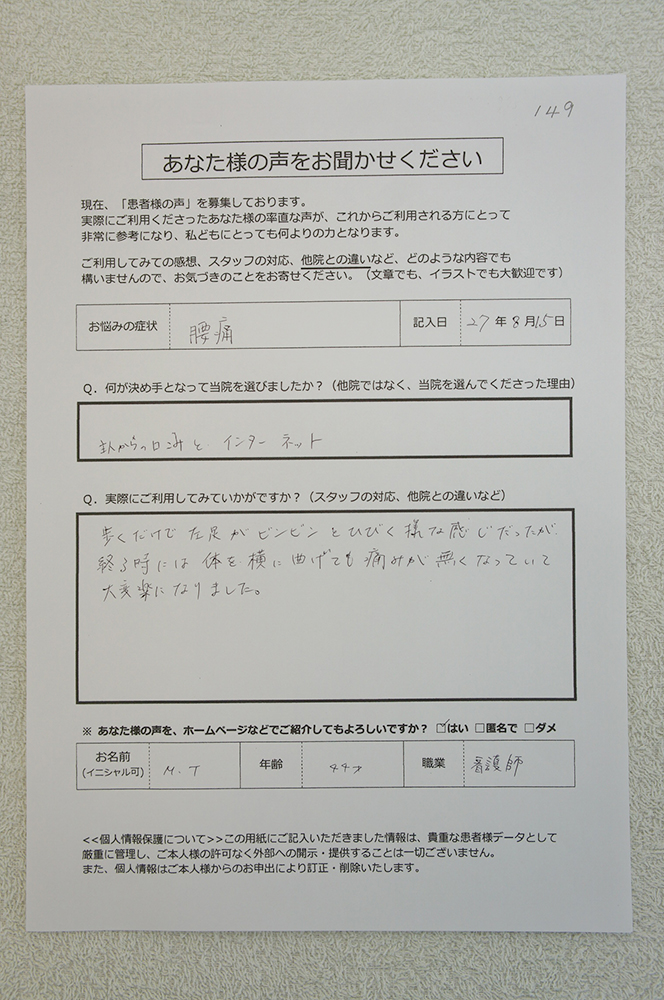 149
あなた様の声をお聞かせください
現在、「患者様の声」を募集しております。
実際にご利用くださったあなた様の率直な声が、これからご利用される方にとって
非常に参考になり、私どもにとっても何よりの力となります。
ご利用してみての感想、スタッフの対応、他院との違いなど、どのような内容でも
構いませんので、お気づきのことをお寄せください。（文章でも、イラストでも大歓迎です）
お悩みの症状 腰痛 記入日 27年8月15日
Q．何が決め手となって当院を選びましたか？（他院ではなく、当院を選んでくださった理由）
主人からの口こみと インターネット
Q．実際にご利用してみていかがですか？（スタッフの対応、他院との違いなど）
歩くだけで左足がビンビンとひびく様な感じだったが
終る時には体を横に曲げても痛みが無くなっていて
大変楽になりました。
※ あなた様の声を、ホームページなどでご紹介してもよろしいですか？ ☑はい □匿名で □ダメ
お名前 M.T 年齢 44才 職業 看護師
(イニシャル可)
<<個人情報保護について>>この用紙にご記入いただきました情報は、貴重な患者様データとして
厳重に管理し、ご本人様の許可なく外部への開示・提供することは一切ございません。
また、個人情報はご本人様からのお申出により訂正・削除いたします。